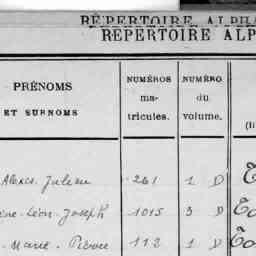 RÉPERTOIRE ALPHA
RÉPERTOIRE ALP
PRÉNOMS
ET SURNOMS
NUMÉROS
ma-
tricules.
NUMÉRO
du
volume.
(li
Alexis Julien 261 1 D
Léon Joseph 1015 3 D
Marie Pierre 112 1 D